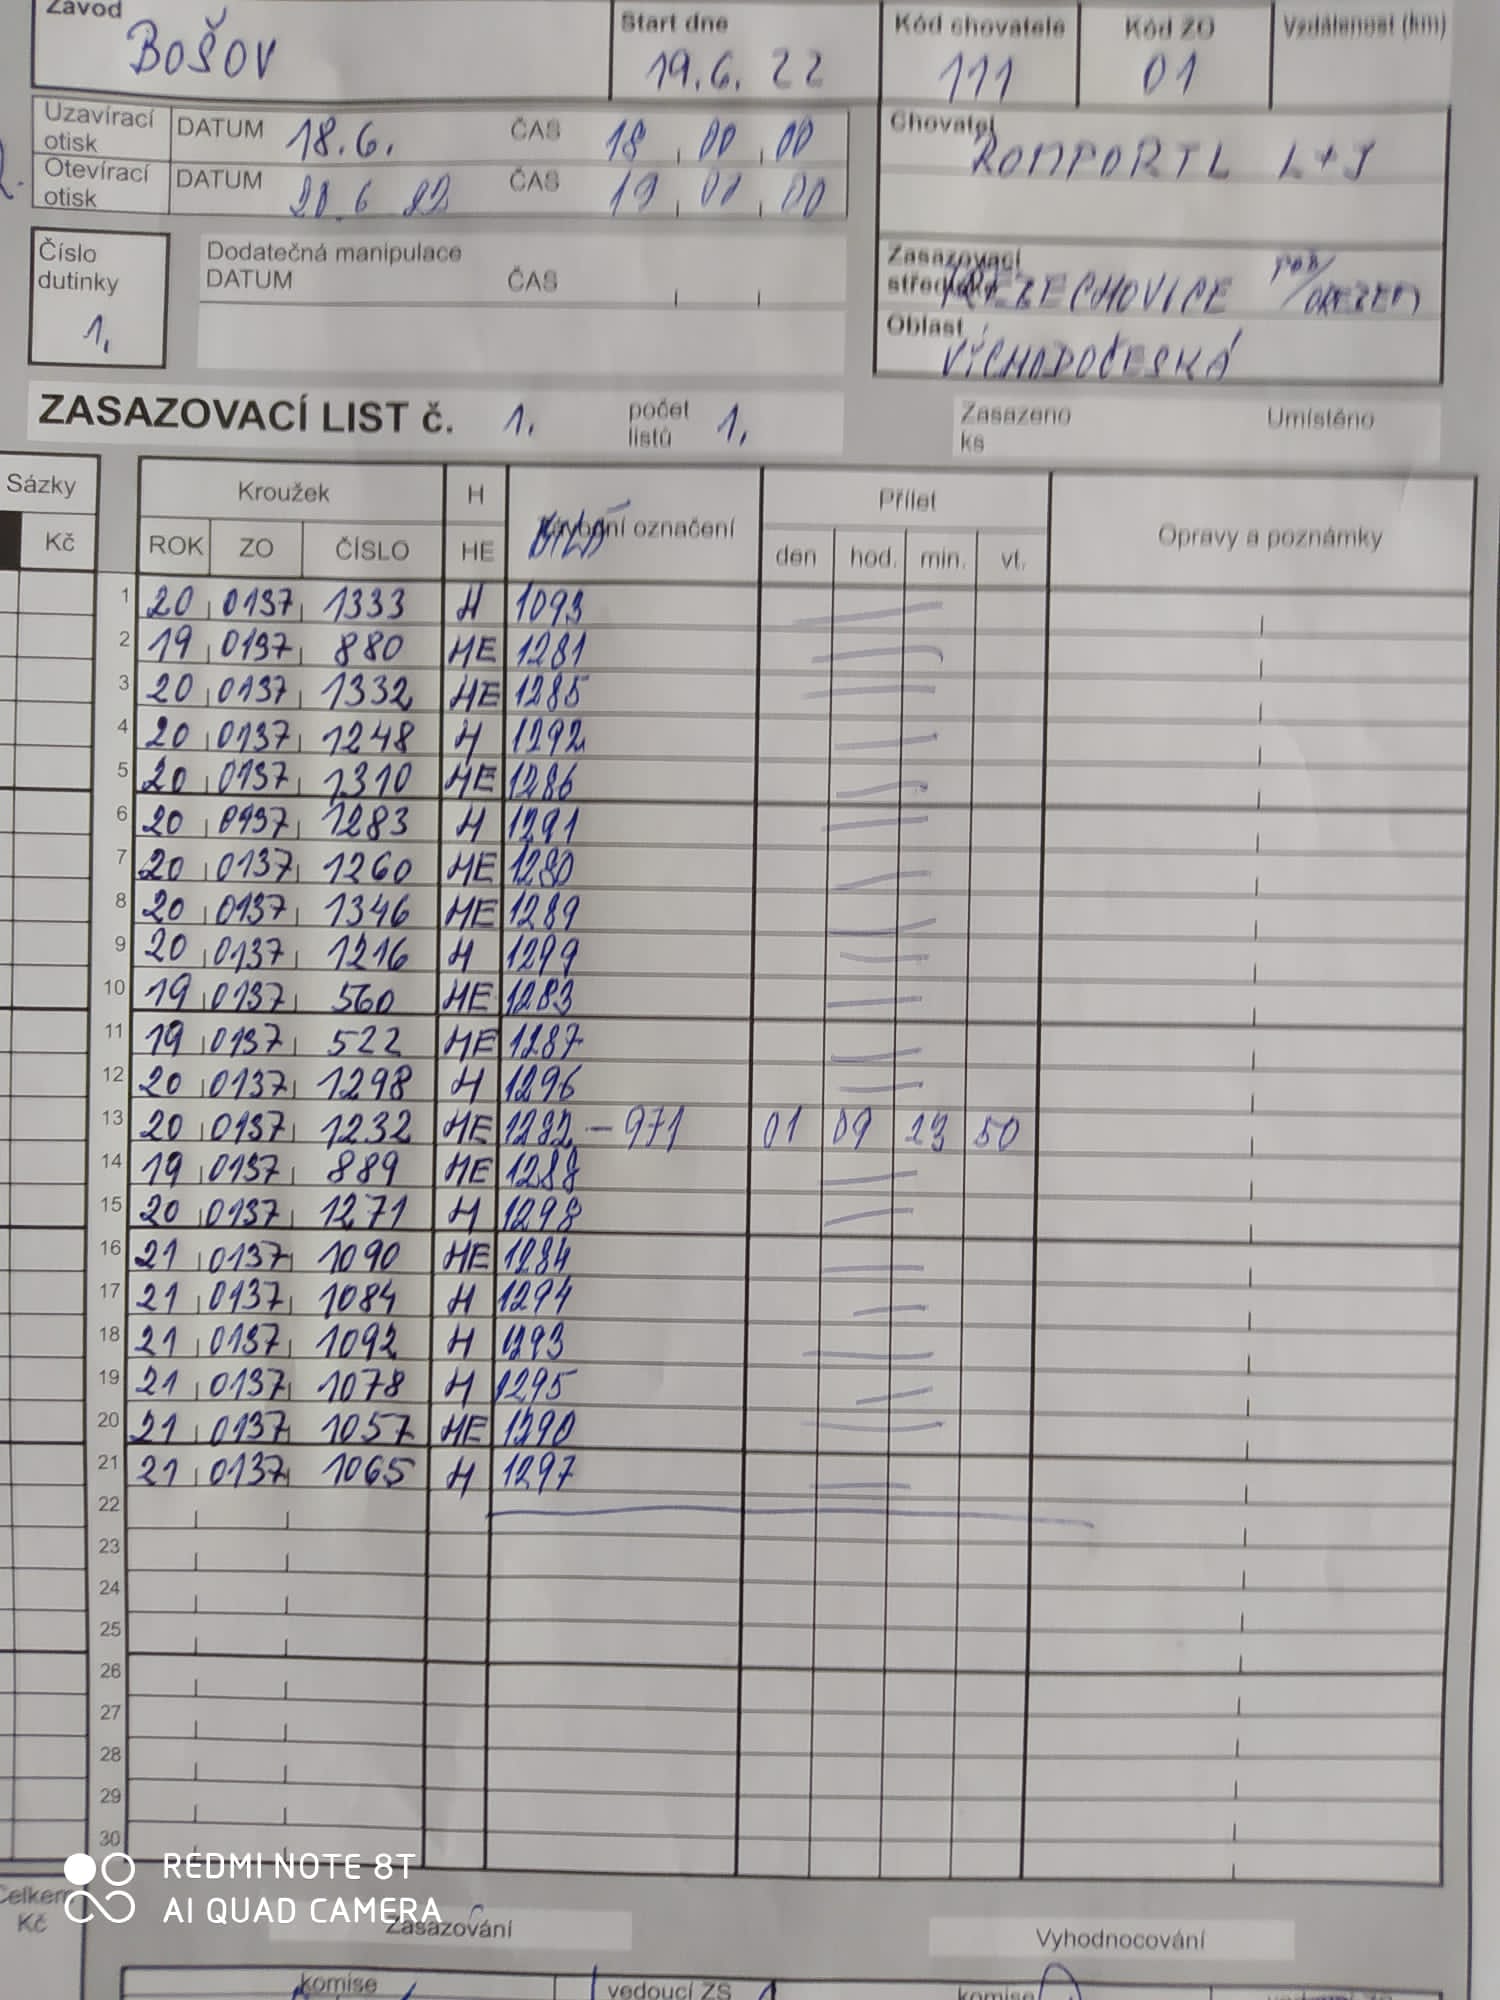 Závod Start dne Kód chovatele Kód ZO Vzdálenost (km)
BOŠOV 19.6. 22 111 01
Uzavírací otisk DATUM 18.6. ČAS 18 00 00
Otevírací otisk DATUM 20.6 22 ČAS 19 00 00
Chovatel
ROMPORTL L+J
Číslo dutinky
1.
Dodatečná manipulace
DATUM ČAS
Zasazovací středisko
POD
Oblast
VÝCHODOČESKÁ
ZASAZOVACÍ LIST č. 1. počet listů 1.
Zasazeno ks Umístěno
Sázky Kroužek H Přílet
Kč ROK ZO ČÍSLO HE označení den hod. min. vt. Opravy a poznámky
1 20 0137 1333 H 1093
2 19 0137 880 HE 1281
3 20 0137 1332 HE 1285
4 20 0137 1248 H 1292
5 20 0137 1310 HE 1286
6 20 0137 1283 H 1291
7 20 0137 1260 HE 1280
8 20 0137 1346 HE 1289
9 20 0137 1216 H 1299
10 19 0137 560 HE 1283
11 19 0137 522 HE 1287
12 20 0137 1298 H 1296
13 20 0137 1232 HE 1282 – 971 01 09 23 50
14 19 0137 889 HE 1288
15 20 0137 1271 H 1298
16 21 0137 1090 HE 1284
17 21 0137 1084 H 1294
18 21 0137 1092 H 1293
19 21 0137 1078 H 1295
20 21 0137 1057 HE 1290
21 21 0137 1065 H 1297
22
23
24
25
26
27
28
29
30
REDMI NOTE 8T
AI QUAD CAMERA
Celkem Kč
Zasazování Vyhodnocování
komise vedoucí ZS komise